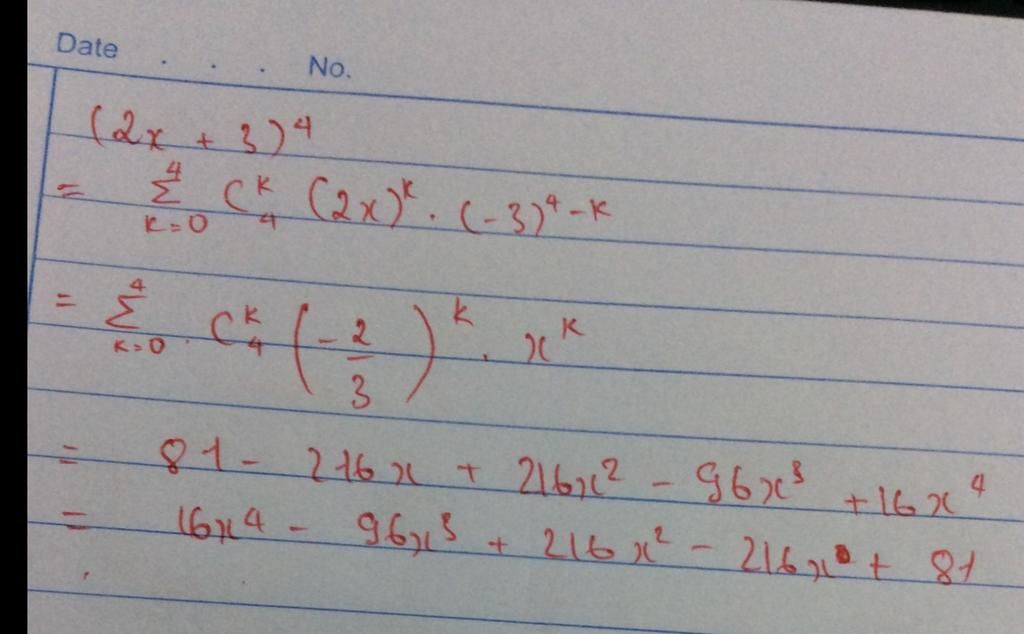 Date . . . No.
(2x + 3)^4
= Σ_{K=0}^{4} C_4^K (2x)^K . (-3)^{4-K}
= Σ_{K=0}^{4} . C_4^K (-2/3)^K . x^K
= 81 - 216x + 216x² - 96x³ + 16x⁴
= 16x⁴ - 96x³ + 216x² - 216x + 81